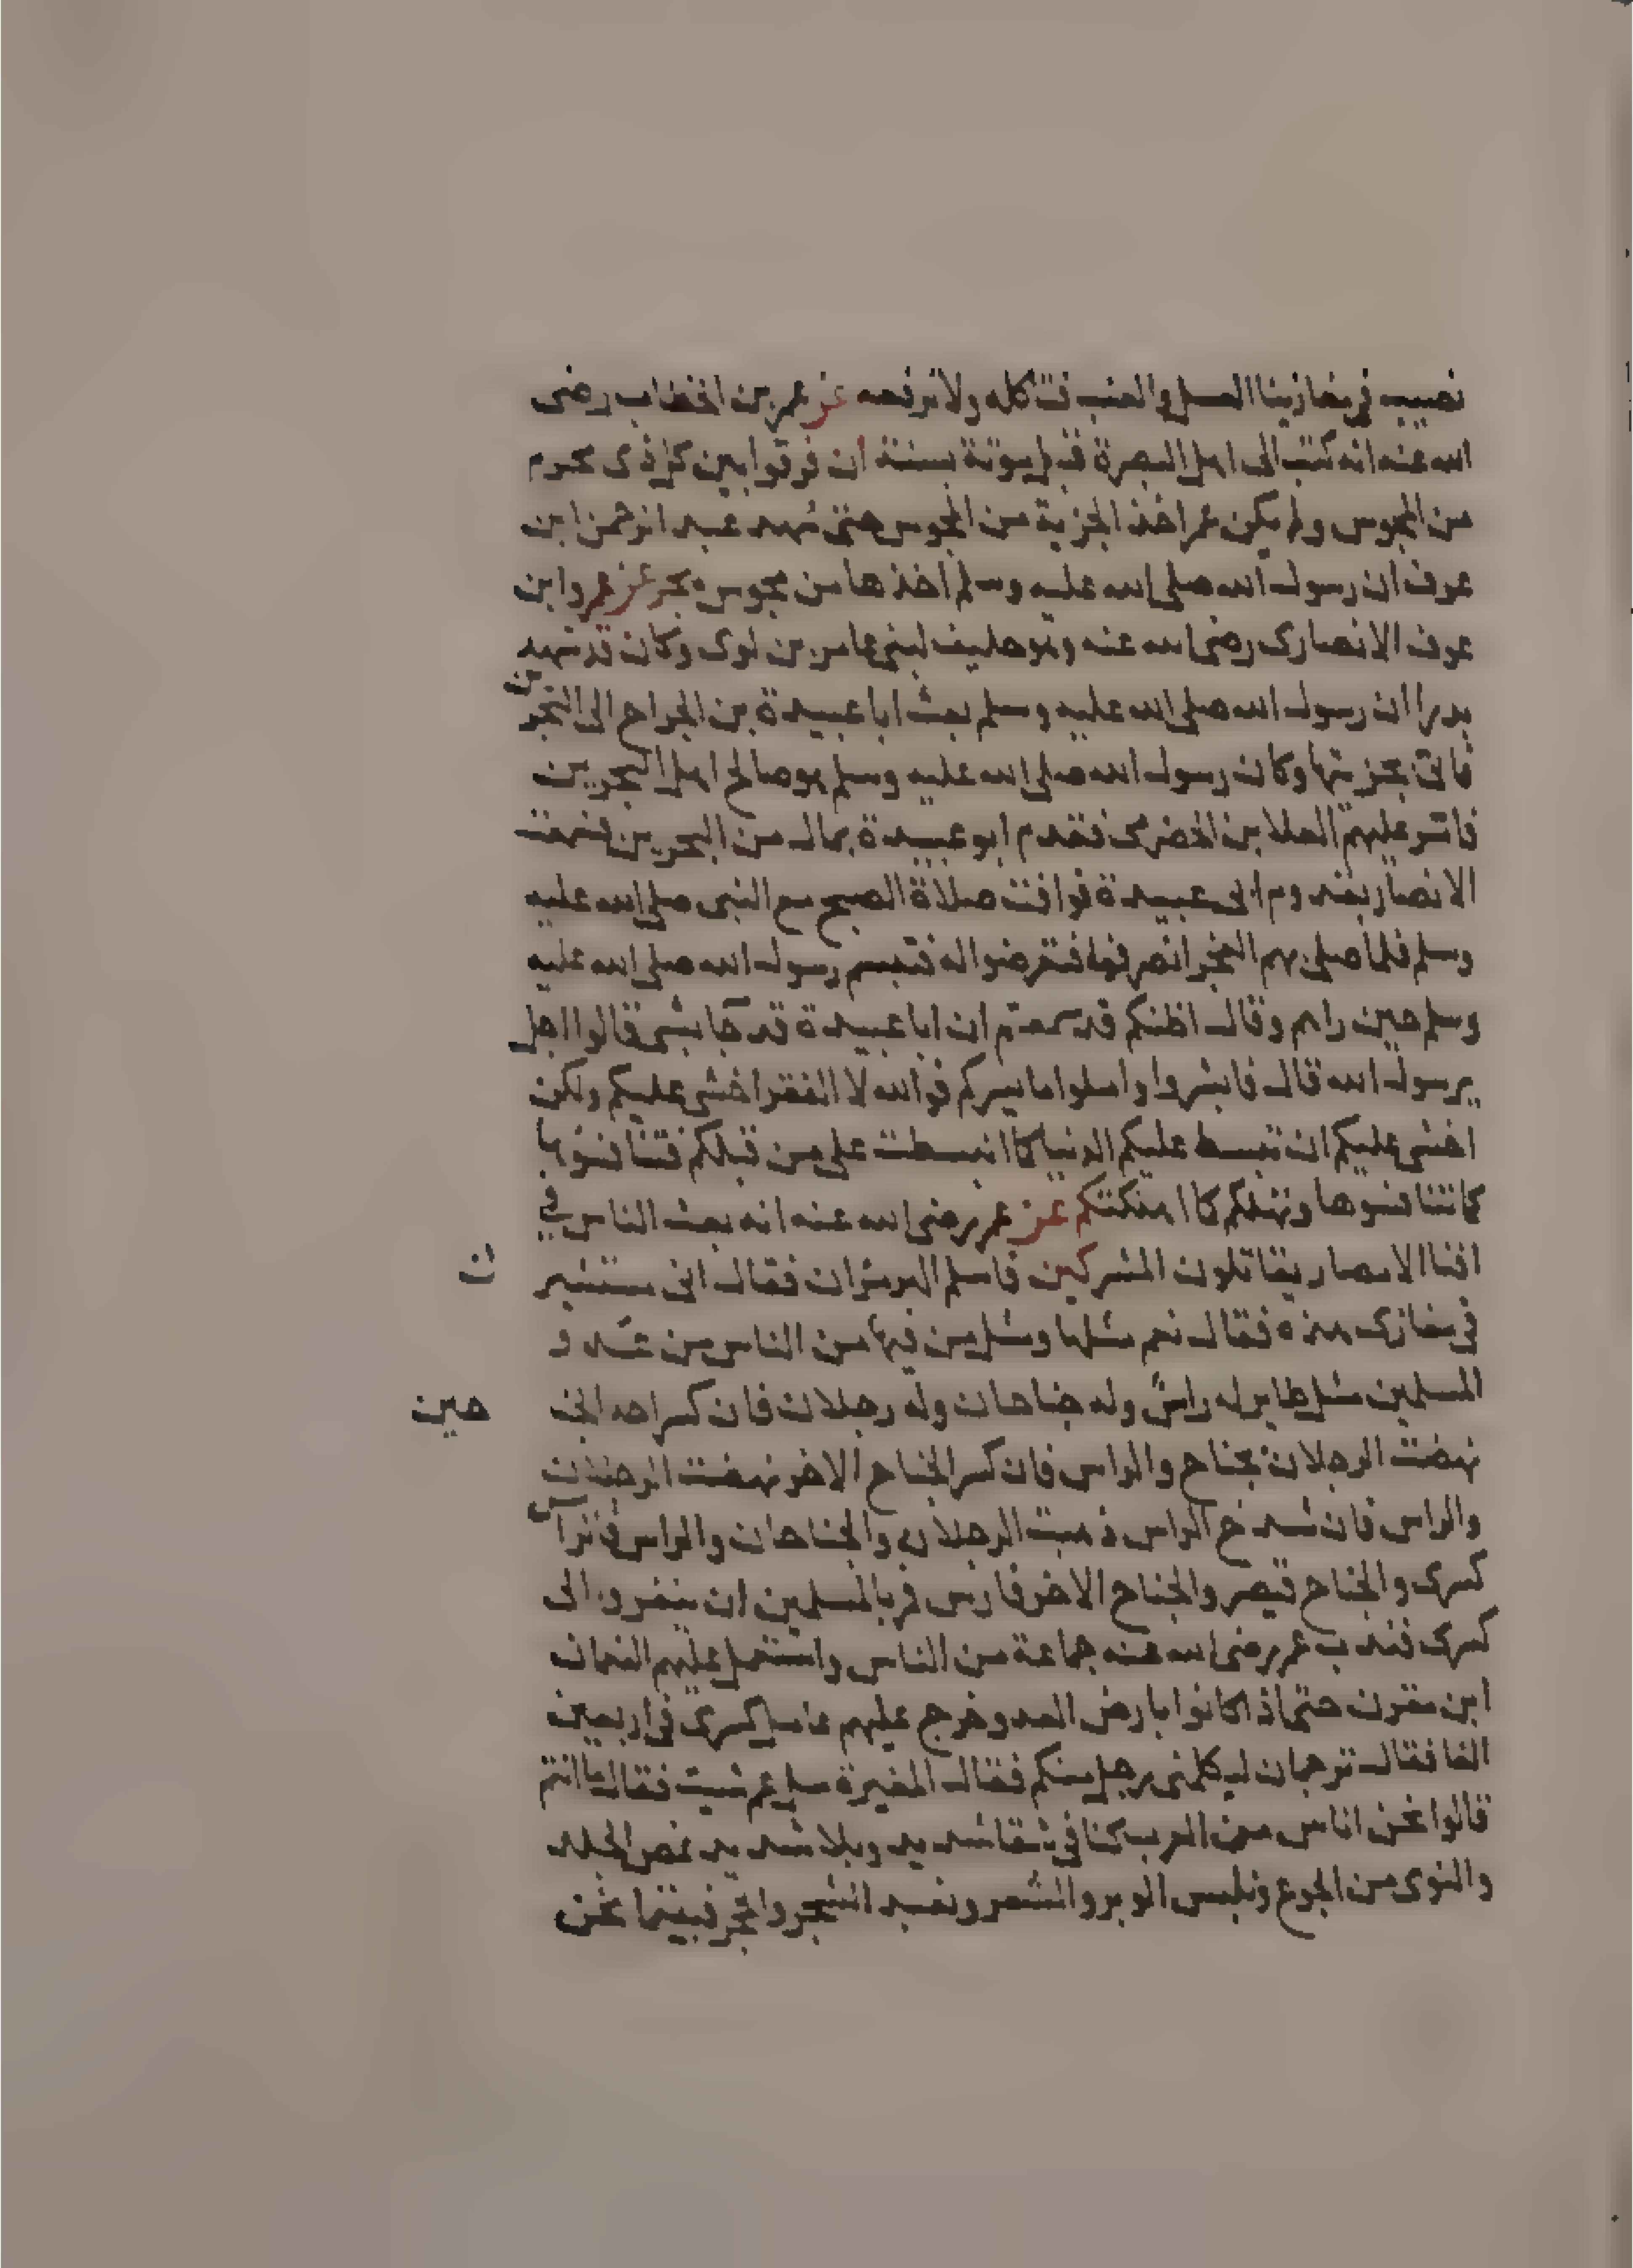 نصيب في مغازينا العسل والعنب فناكله ولا نرفعه عن عمر بن الخطاب رضى
الله عنه انه كتب الى اهل البصرة قبل موته بسنة ان فرقوا بين كل ذى محرم
من المجوس ولم يكن عمر اخذ الجزية من المجوس حتى شهد عبد الرحمن ابن
عوف ان رسول الله صلى الله عليه وسلم اخذها من مجوس هجر عن عمرو ابن
عوف الانصارى رضى الله عنه وهو حليف لبنى عامر بن لوى وكان قد شهد
بدرا ان رسول الله صلى الله عليه وسلم بعث ابا عبيدة بن الجراح الى البحرين
فاتى بجزيتها وكان رسول الله صلى الله عليه وسلم هو صالح اهل البحرين
فامر عليهم العلا بن الحضرمى فقدم ابو عبيدة بمال من البحرين فسمعت
الانصار بقدوم ابى عبيدة فوافت صلاة الصبح مع النبى صلى الله عليه
وسلم فلما صلى بهم الفجر انصرف فتعرضوا له فتبسم رسول الله صلى الله عليه
وسلم حين راهم وقال اظنكم قد سمعتم ان ابا عبيدة قد جا بشى قالوا اجل
يرسول الله قال فابشروا واملوا ما يسركم فوالله لا الفقر اخشى عليكم ولكن
اخشى عليكم ان تبسط عليكم الدنيا كما انبسطت على من قبلكم فتنافسوها
كما تنافسوها وتهلككم كما اهلكتكم عن عمر رضى الله عنه انه بعث الناس في
افنا الامصار يقاتلون المشركين فاسلم الهرمزان فقال انى مستشيرك
في مغازى هذه فقال نعم مثلها ومثل من فيها من الناس من عدو
المسلمين مثل طاير له راس وله جناحان وله رجلان فان كسر احد الجناحين
نهضت الرجلان بجناح والراس فان كسر الجناح الاخر نهضت الرجلان
والراس فان شدخ الراس ذهبت الرجلان والجناحان والراس فالراس
كسرى والجناح قيصر والجناح الاخر فارس فمر بالمسلمين ان ينفروا الى
كسرى فندب عمر رضى الله عنه جماعة من الناس واستعمل عليهم النعمان
ابن مقرن حتى اذا كانوا بارض العدو خرج عليهم عامل كسرى في اربعين
الفا فقال ترجمان ليكلمنى رجل منكم فقال المغيرة سل عم شيت فقال ما انتم
قالوا نحن اناس من العرب كنا في شقا شديد وبلا شديد نمص الجلد
والنوى من الجوع ونلبس الوبر والشعر ونعبد الشجر والحجر فبينما نحن